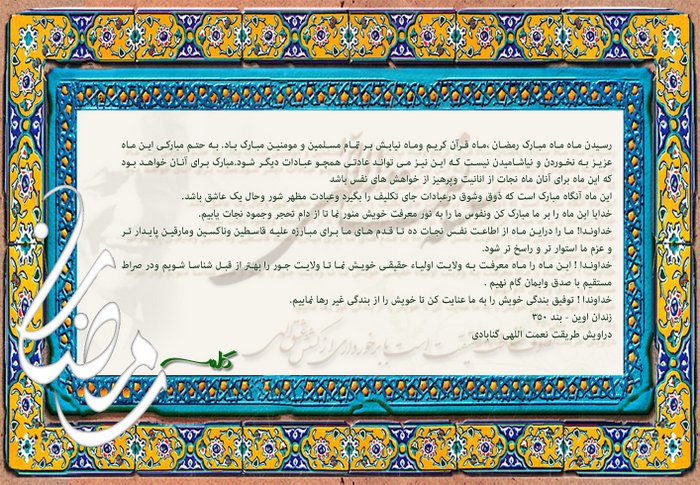 رسیدن ماه ماه مبارک رمضان ،ماه قرآن کریم وماه نیایش بر تمام مسلمین و مومنین مبارک باد. به حتم مبارکی این ماه
عزیز به نخوردن و نیاشامیدن نیست که این نیز می تواند عادتی همچو عبادات دیگر شود.مبارک برای آنان خواهد بود
که این ماه برای آنان ماه نجات از انانیت وپرهیز از خواهش های نفس باشد
این ماه آنگاه مبارک است که ذوق وشوق درعبادات جای تکلیف را بگیرد وعبادت مظهر شور وحال یک عاشق باشد.
خدایا این ماه را بر ما مبارک کن ونفوس ما را به نور معرفت خویش منور نما تا از دام تحجر وجمود نجات یابیم.
خداوندا! ما را دراین ماه از اطاعت نفس نجات ده تا قدم های ما برای مبارزه علیه قاسطین وناکسین ومارقین پایدار تر
و عزم ما استوار تر و راسخ تر شود.
خداوندا ! این ماه را ماه معرفت به ولایت اولیاء حقیقی خویش نما تا ولایت جور را بهتر از قبل شناسا شویم ودر صراط
مستقیم با صدق وایمان گام نهیم .
خداوندا ! توفیق بندگی خویش را به ما عنایت کن تا خویش را از بندگی غیر رها نماییم.
زندان اوین - بند ۳۵۰
دراویش طریقت نعمت اللهی گنابادی
رمضان